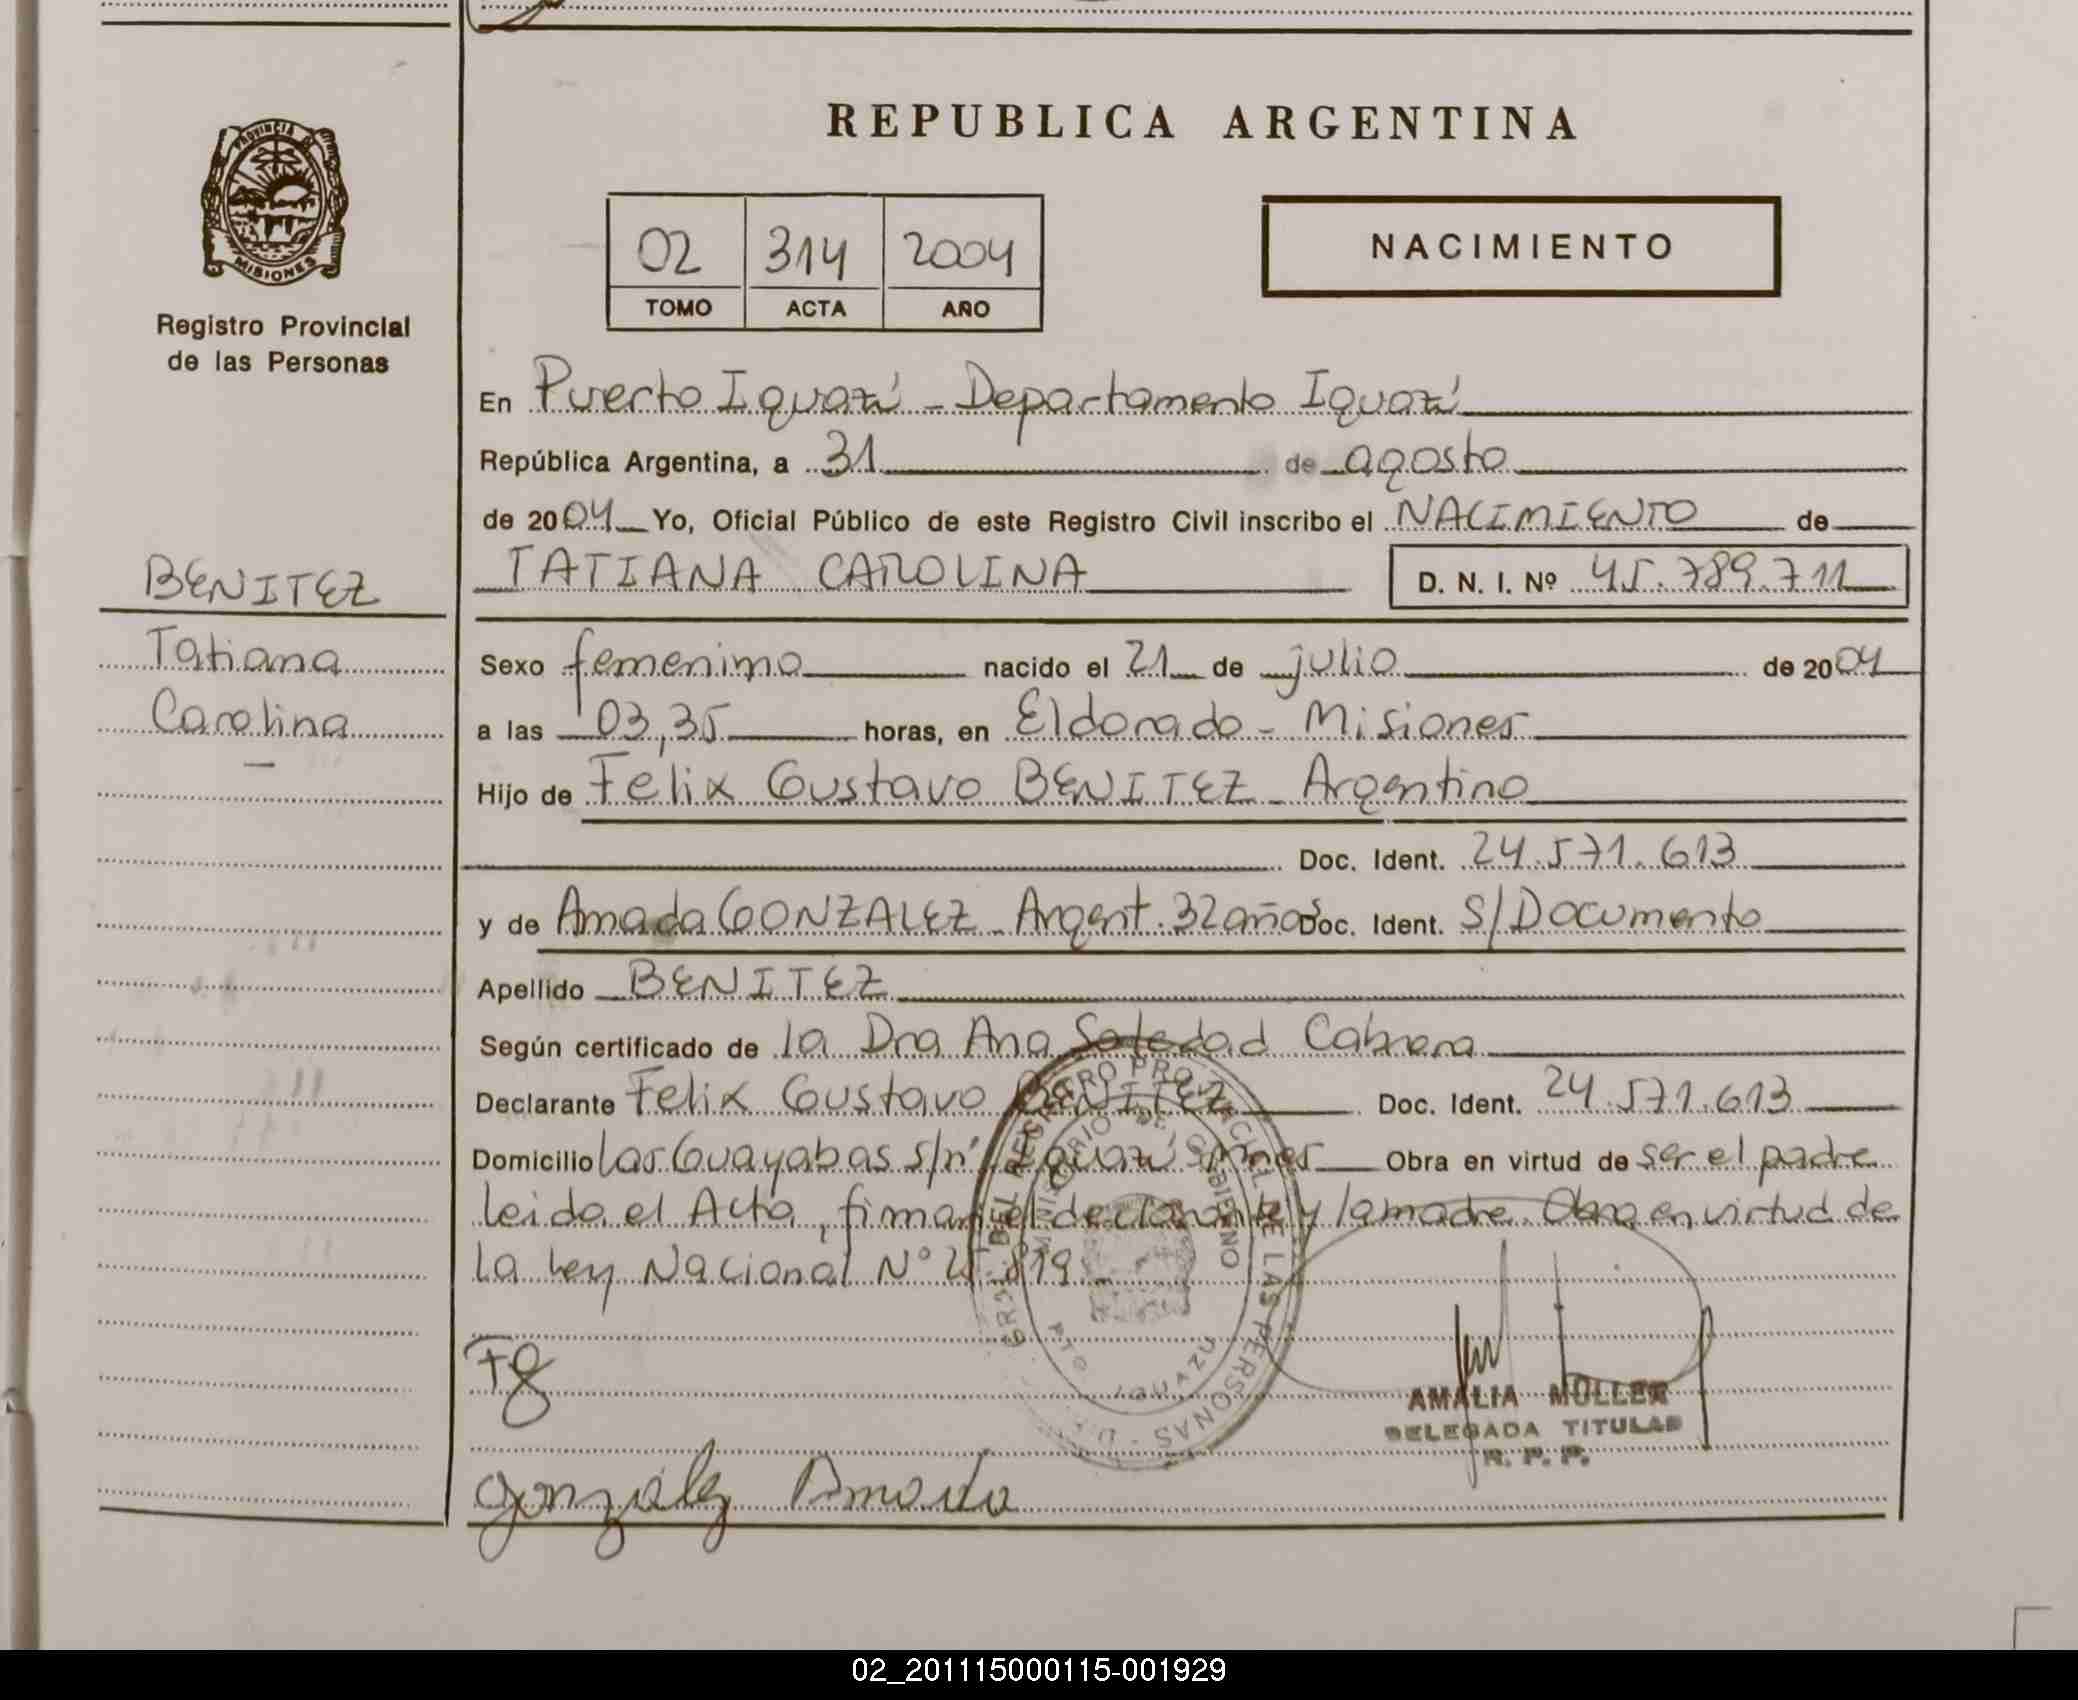 REPUBLICA ARGENTINA
PROVINCIA DE
MISIONES
Registro Provincial
de las Personas
02 314 2004
TOMO ACTA AÑO
NACIMIENTO
En Puerto Iguazú - Departamento Iguazú
República Argentina, a 31 de agosto
de 2004 Yo, Oficial Público de este Registro Civil inscribo el NACIMIENTO de
TATIANA CAROLINA D. N. I. Nº 45.789.711
BENITEZ
Tatiana
Carolina
Sexo femenino nacido el 21 de julio de 2004
a las 03,35 horas, en Eldorado - Misiones
Hijo de Felix Gustavo BENITEZ - Argentino
Doc. Ident. 24.571.613
y de Amada GONZALEZ - Argent. 32 años Doc. Ident. S/Documento
Apellido BENITEZ
Según certificado de la Dra Ana Soledad Cabrera
Declarante Felix Gustavo BENITEZ Doc. Ident. 24.571.613
Domicilio Las Guayabas s/nº Iguazú Mnes Obra en virtud de ser el padre
leida el Acta, firman el declarante y la madre. Obra en virtud de
la Ley Nacional Nº 819
DEL REGISTRO PROVINCIAL DE LAS PERSONAS
MINISTERIO DE GOBIERNO
PTO IGUAZU
AMALIA MULLER
DELEGADA TITULAR
R. P. P.
Gonzalez Amada
02_201115000115-001929